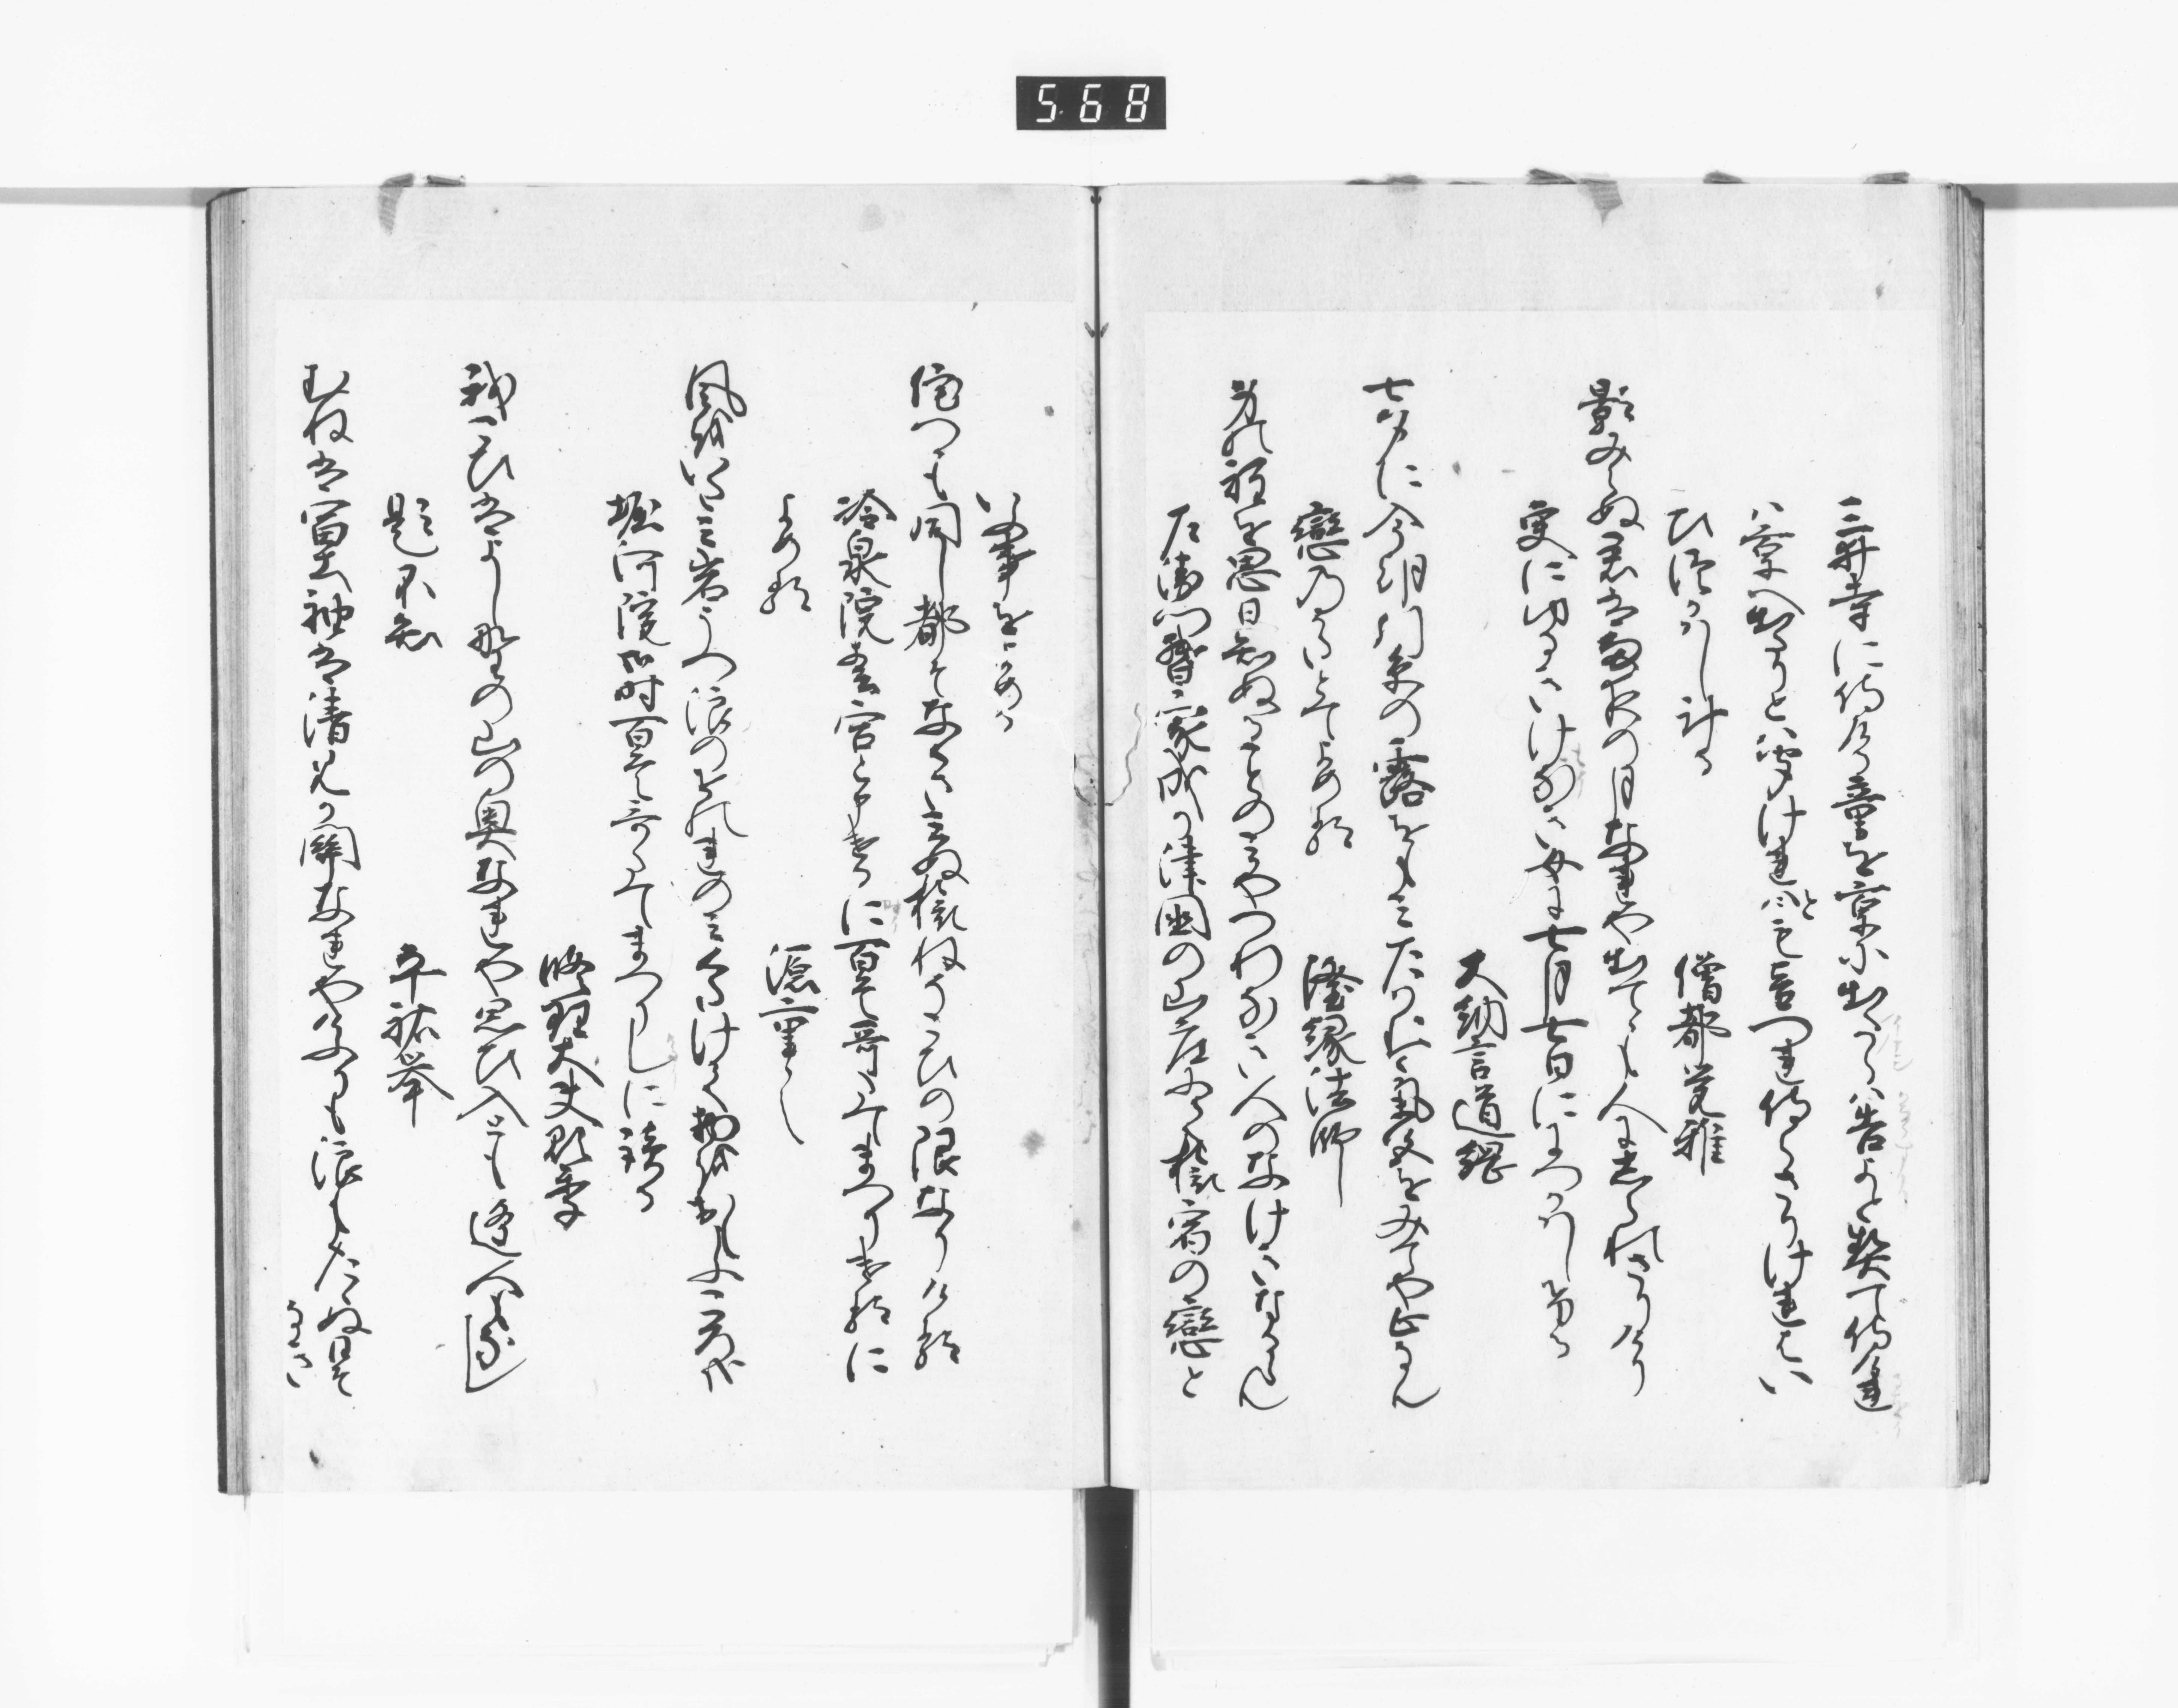 568
三井寺に侍ける童を京に出かならは告よと契て侍けれ
は京へ出たりとは聞けれとも音つれ侍らさりけれはい
ひつかはしける
僧都覚雅
影みえぬ君は雨夜の月なれや出ても人にしられさりけり
更にゆるしけなかりける女に七月七日につかはしける
大納言道綱
七夕に今朝引糸の露をもみたはに気色をみてや止なん
恋乃うたとてよめる
隆縁法師
身の程を思日知ぬることのみやつれなき人のなけきなるらん
左衛門督家成か津国の山庄にて旅宿の恋と
いふ事をよめる
侘つゝも同し都はなくさみぬ旅ねそこひの限なりける
冷泉院春宮と申ける時に百首哥よみてまつりけるに
よめる
源重之
風をいたみ岩うつ浪のをのれのみくたけて物を思ふころ哉
堀河院御時百首哥よみてまつりしに詠る
修理大夫顕季
我こひはよし野の山の奥なれや思ひ入とも逢人もなし
題不知
平祐挙
むねは富士袖は清見か関なれや烟も浪もたゝぬ日そ
なき